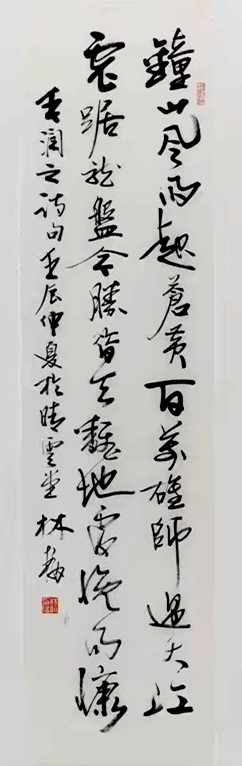 鐘山风雨起蒼黄百萬雄師過大江
虎踞龙盤今勝昔天翻地覆慨而慷
毛润之诗句壬辰仲夏於晴雲堂林